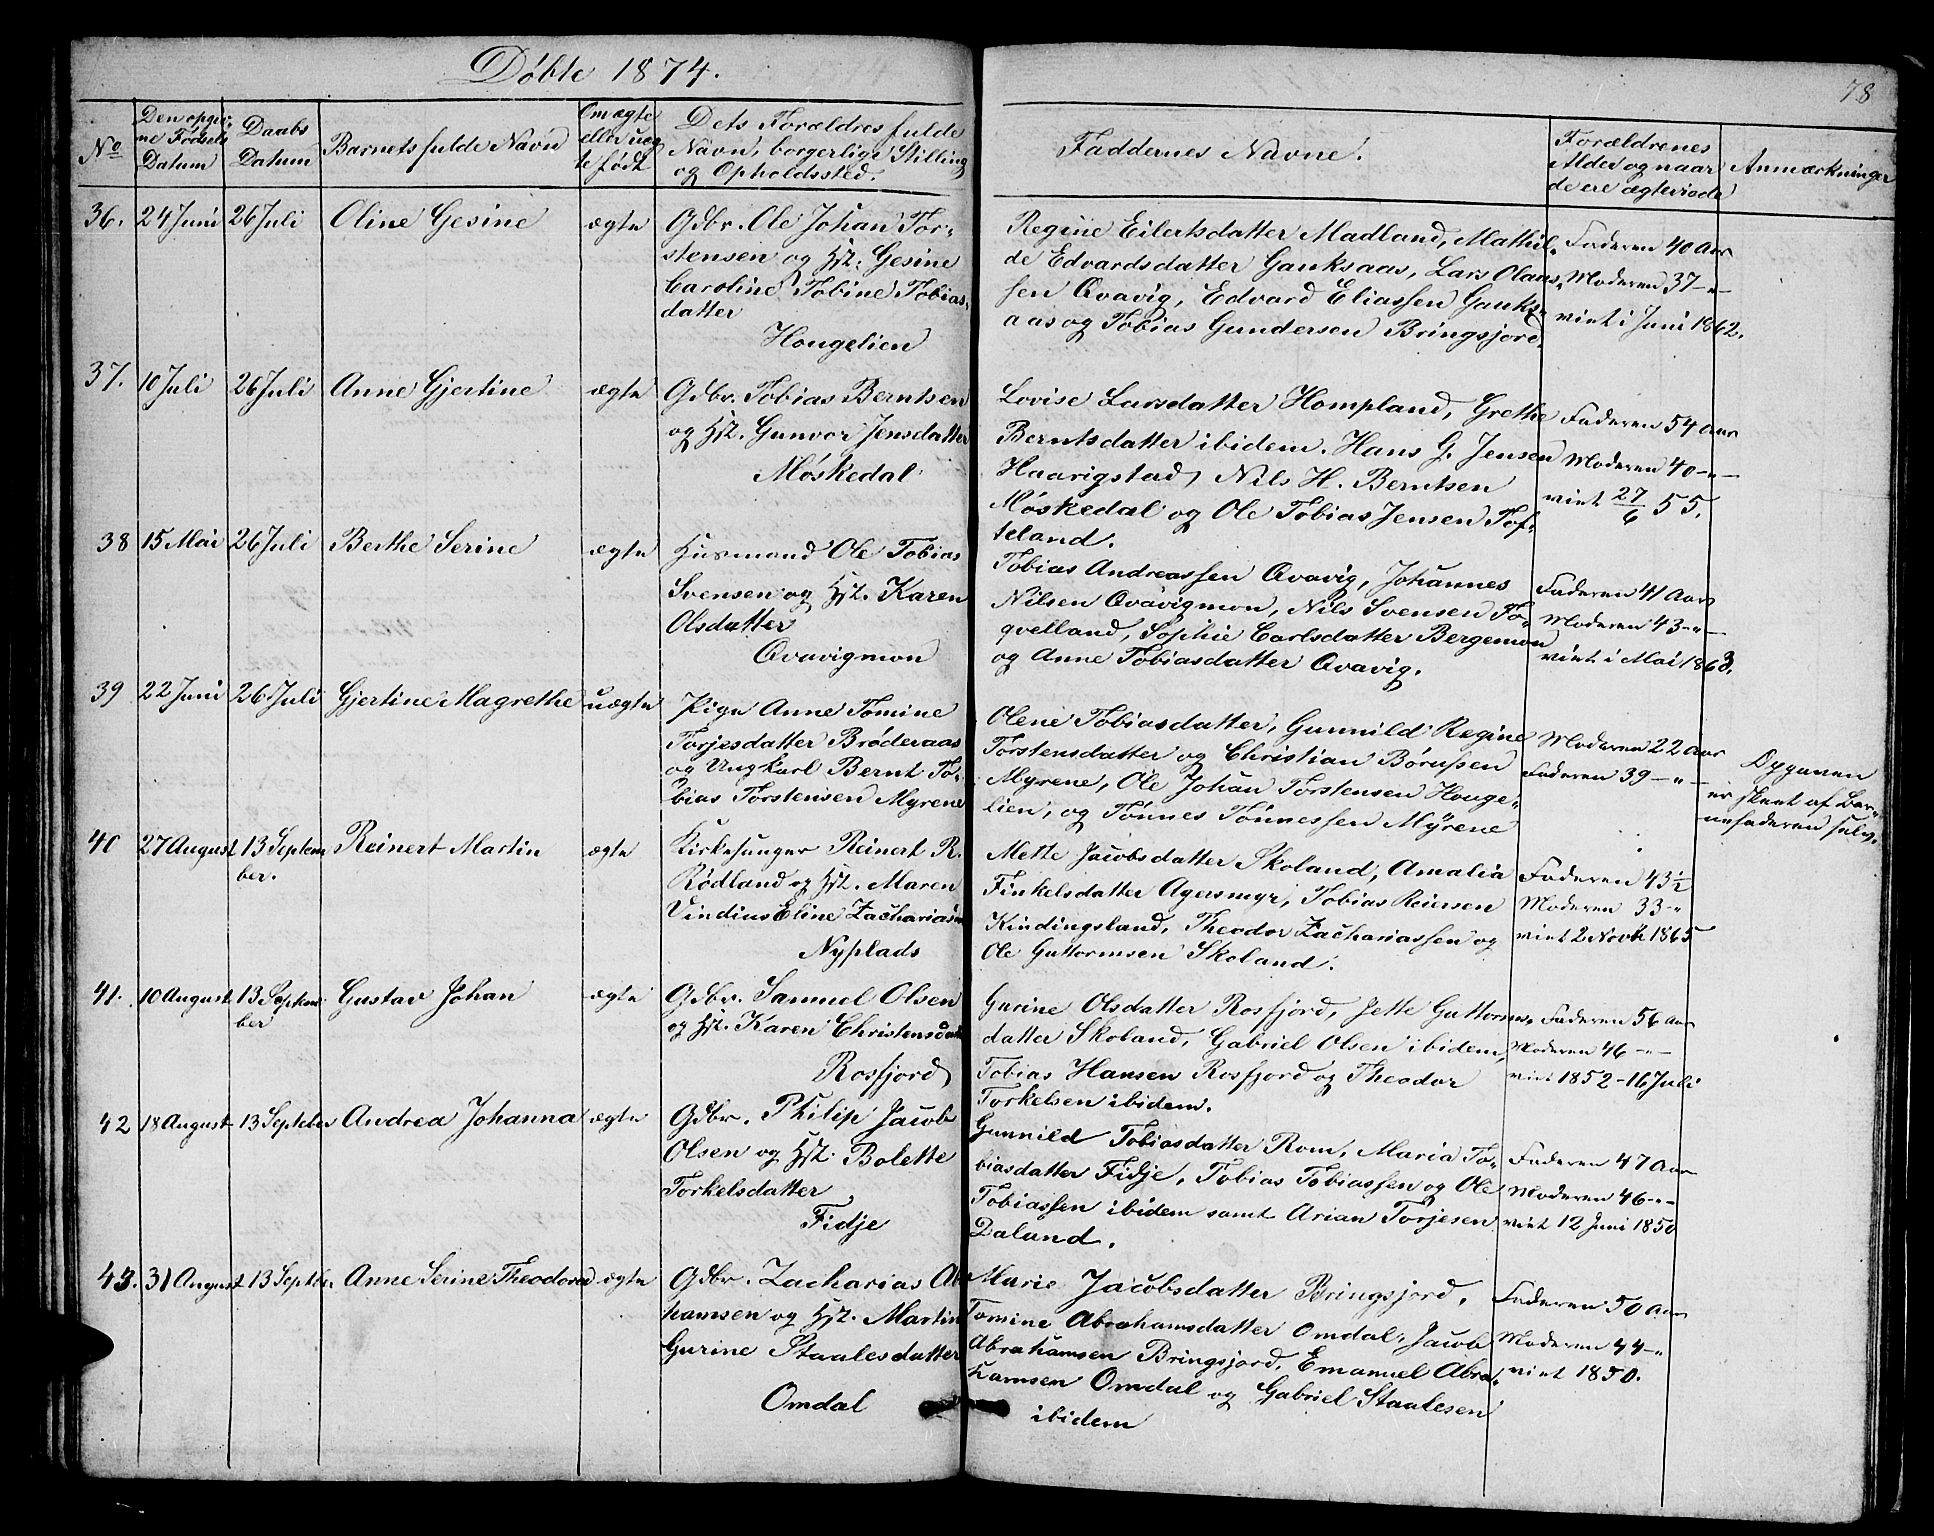 Döbte 1874.
78
No
Den opgiv-
ne Födsels
Datum
Daabs
Datum
Barnets fulde Navn
Om ægte
eller uæg
te födt
Dets Forældres fulde
Navn, borgerlige Stilling
og Opholdssted.
Faddernes Navne.
Forældrenes
Alder og naar
de ere ægteviede
Anmærkninger
36. 24 Juni 26 Juli Oline Gesine ægte
Gdbr. Ole Johan Tor-
stensen og Hst. Gesine
Caroline Tobine Tobias-
datter
Hougelien
Regine Eilertsdatter Madland, Mathil-
de Edvardsdatter Gauksaas, Lars Olaus-
sen Qvavig, Edvard Eliassen Gauks-
aas og Tobias Gundersen Bringsjord.
Faderen 40 Aar
Moderen 37 -"-
viet i Juni 1862.
37. 10 Juli 26 Juli Anne Gjertine ægte
Gdbr. Tobias Berntsen
og Hst. Gunvor Jensdatter
Möskedal
Lovise Larsdatter Hompland, Grethe
Berntsdatter ibidem. Hans G. Jensen
Haarigstad, Nils H. Berntsen
Möskedal og Ole Tobias Jensen Tof-
teland.
Faderen 54 Aar
Moderen 40 -"-
viet 27/6 55.
38 15 Mai 26 Juli Berthe Serine ægte
Husmand Ole Tobias
Svensen og Hst. Karen
Olsdatter
Qvavigmon
Tobias Andreassen Qvavig, Johannes
Nilsen Qvavigmon, Nils Svensen Fo-
qvelland, Sophie Carlsdatter Bergemon
og Anne Tobiasdatter Qvavig.
Faderen 41 Aar
Moderen 43 -"-
viet i Mai 1863.
39 22 Juni 26 Juli Gjertine Magrethe uægte
Pige Anne Tomine
Torjesdatter Bröderaas
og Ungkarl Bernt To-
bias Torstensen Myrene
Olene Tobiasdatter, Gunnild Regine
Torstensdatter og Christian Börufsen
Myrene, Ole Johan Torstensen Houge-
lien, og Tönnes Tönnessen Myrene
Moderen 22 Aar
Faderen 39 -"-
Opgaven
er skeet af Bar-
nefaderen selv.
40 27 August 13 Septem
ber. Reinert Martin ægte
Kirkesanger Reinert R.
Rödland og Hst. Maren
Vindius Eline Zachariasen
Nyplads
Mette Jacobsdatter Skoland, Amalia
Finkelsdatter Agersmyr, Tobias Reiersen
Kindingsland, Theodor Zachariassen og
Ole Guttormsen Skoland.
Faderen 43½
Moderen 33 -"
viet 2 Novbr 1865
41. 10 August 13 Septem
ber Gustav Johan ægte
Gdbr. Samuel Olsen
og Hst. Karen Christensdatt
Rosfjord
Gurine Olsdatter Rosfjord, Jette Guttorms-
datter Skoland, Gabriel Olsen ibidem,
Tobias Hansen Rosfjord og Theodor
Torkelsen ibidem.
Faderen 56 Aar
Moderen 46 -"-
viet 1852 - 16 Juli
42 18 August 13 Septeber Andrea Johanna ægte
Gdbr. Philip Jacob
Olsen og Hst. Bolette
Torkelsdatter
Fidje
Gunnild Tobiasdatter Rom, Maria To-
biasdatter Fidje, Tobias Tobiassen og Ole
Tobiassen ibidem samt Arian Torjesen
Daland.
Faderen 47 Aar
Moderen 46 -"-
viet 12 Juni 1850
43. 31 August 13 Septbr. Anne Serine Theodora ægte
Gdbr. Zacharias Abr
hamsen og Hst. Martin
Gurine Staalesdatter
Omdal
Marie Jacobsdatter Bringsjord,
Tomine Abrahamsdatter Omdal, Jacob
Abrahamsen Bringsjord, Emanuel Abra-
hamsen Omdal og Gabriel Staalesen
ibidem
Faderen 50 Aar
Moderen 44 -"
viet 1850.